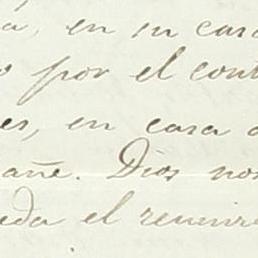 á, en su cas
o por el cont
es, en casa
añe. Dios nos
eda el reunir